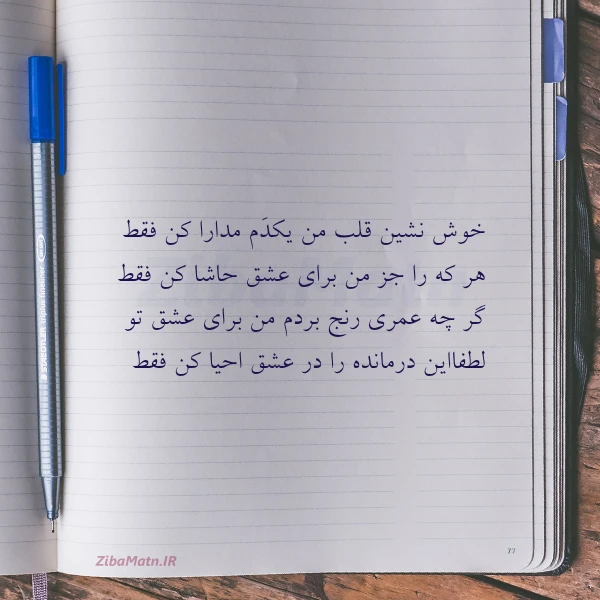 خوش نشین قلب من یکدَم مدارا کن فقط
هر که را جز من برای عشق حاشا کن فقط
گر چه عمری رنج بردم من برای عشق تو
لطفااین درمانده را در عشق احیا کن فقط
ZibaMatn.IR